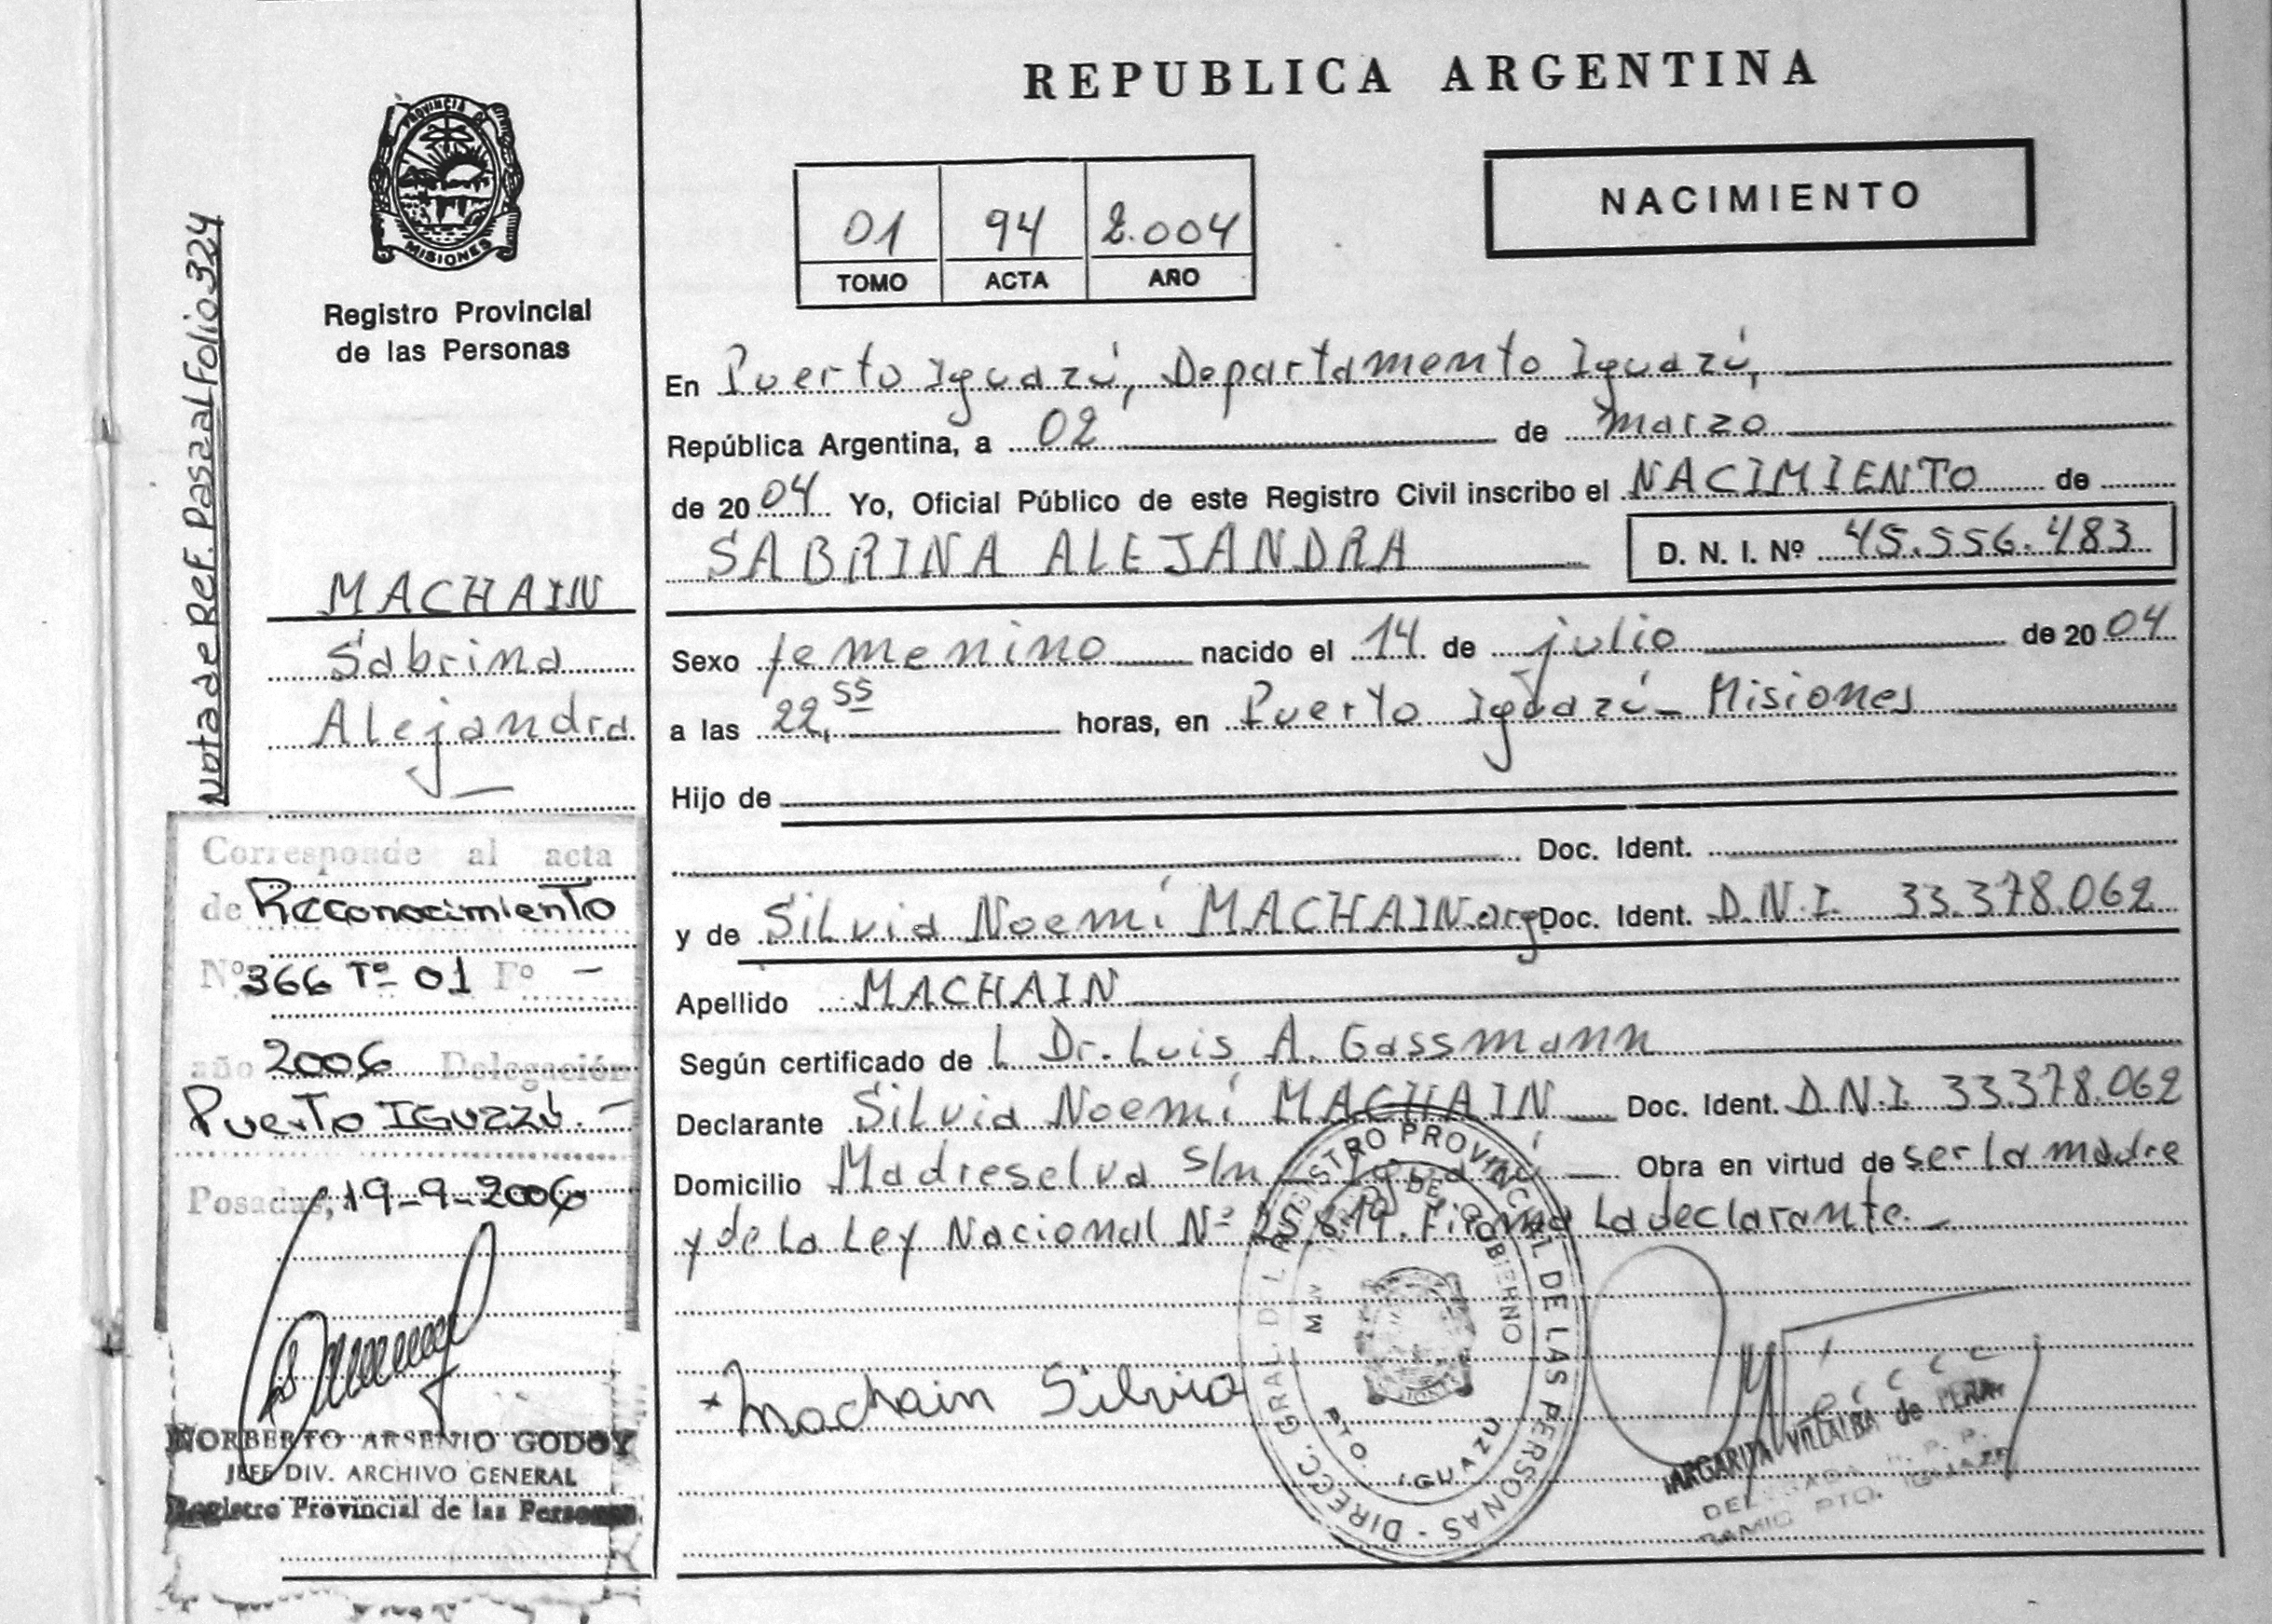 REPUBLICA ARGENTINA
NACIMIENTO
01 94 2.004
TOMO ACTA AÑO
PROVINCIA DE
MISIONES
Registro Provincial
de las Personas
Nota de Ref. Pasa al Folio 324
MACHAIN
Sabrina
Alejandra
Corresponde al acta
de Reconocimiento
Nº 366 Tº 01 Fº -
año 2006 Delegación
Puerto IGUAZÚ.-
Posadas, 19-9-2006
NORBERTO ARSENIO GODOY
JEFE DIV. ARCHIVO GENERAL
Registro Provincial de las Personas
En Puerto Iguazú, Departamento Iguazú,
República Argentina, a 02 de marzo
de 2004 Yo, Oficial Público de este Registro Civil inscribo el NACIMIENTO de
SABRINA ALEJANDRA D. N. I. Nº 45.556.483
Sexo femenino nacido el 14 de julio de 2004
a las 22,55 horas, en Puerto Iguazú - Misiones
Hijo de
Doc. Ident.
y de Silvia Noemí MACHAIN.arg Doc. Ident. D.N.I. 33.378.062
Apellido MACHAIN
Según certificado de l Dr. Luis A. Gassmann
Declarante Silvia Noemí MACHAIN Doc. Ident. D.N.I. 33.378.062
Domicilio Madreselva s/n Iguazú Obra en virtud de ser la madre
y de la Ley Nacional Nº 25.819. Firma la declarante.-
Machain Silvia
DIRECC. GRAL. DEL REGISTRO PROVINCIAL DE LAS PERSONAS
DE GOBIERNO
PTO. IGUAZU
MARGARITA VILLALBA de
DELEGADA R. P. P.
PTO. IGUAZU